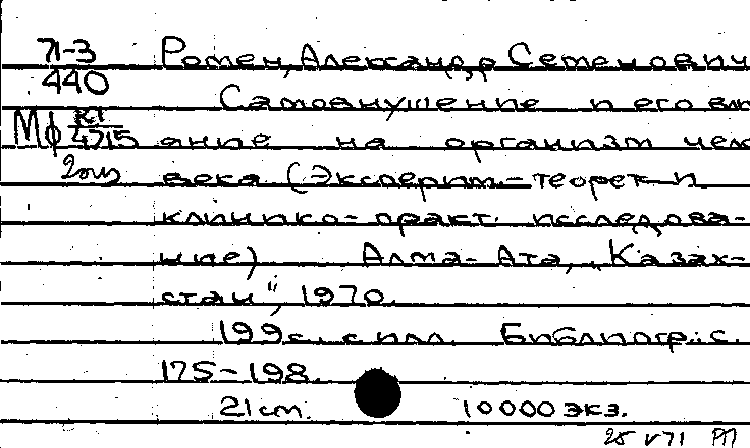 71-3 Ромен, Александр Семенович
440 Самовнушение и его вли
Мф К1 4715 яние на организм чело
века (Эксперим.-теорет. и
клинико-практ. исследова-
ние) Алма-Ата, „Казах-
стан“, 1970.
199 с. с илл. Библиогр.: с.
175-198.
21 cm. 10000 экз.
25 V 71